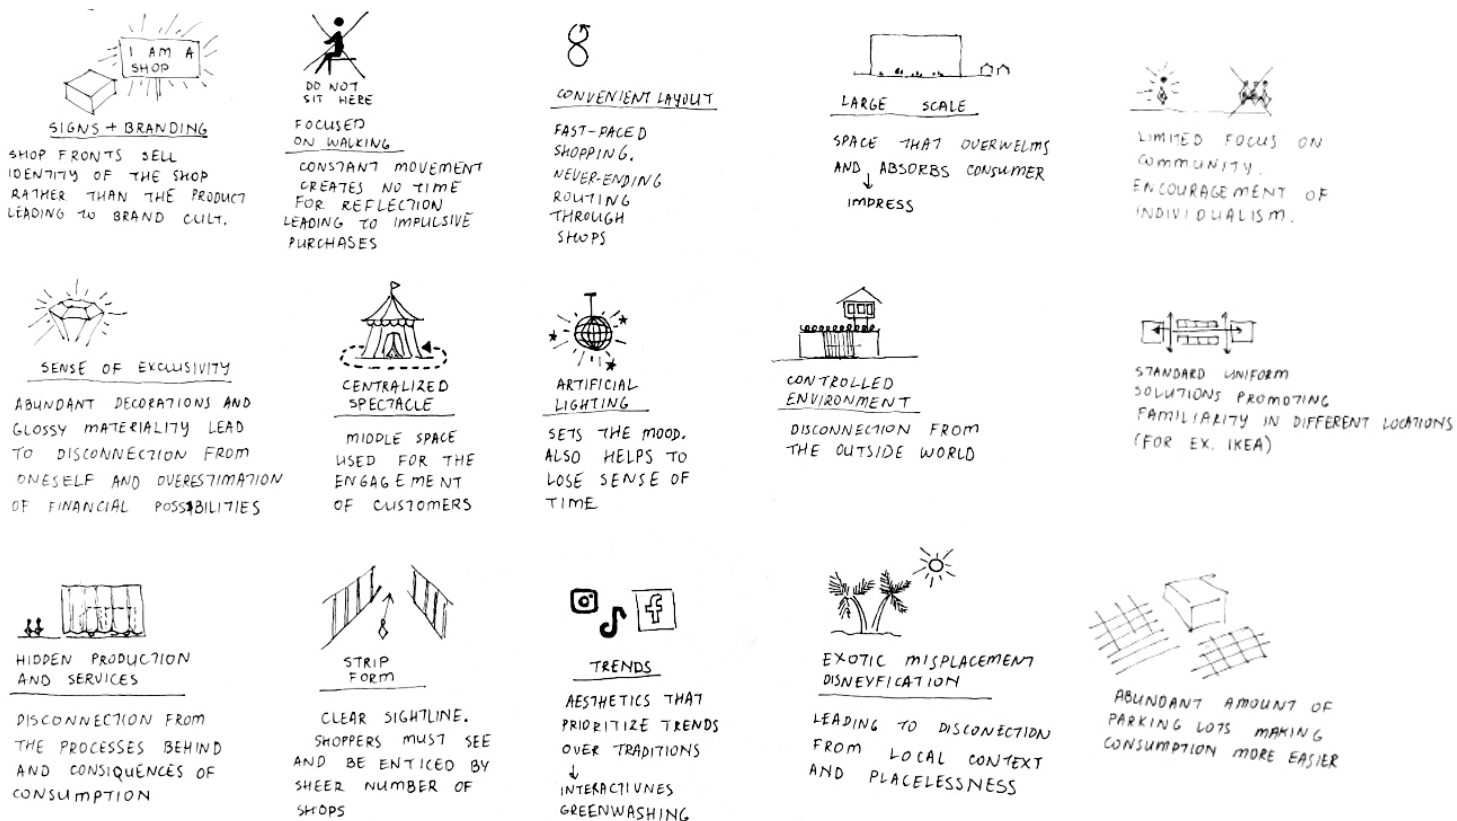 I AM A
SHOP
SIGNS + BRANDING
SHOP FRONTS SELL
IDENTITY OF THE SHOP
RATHER THAN THE PRODUCT
LEADING TO BRAND CULT.
DO NOT
SIT HERE
FOCUSED
ON WALKING
CONSTANT MOVEMENT
CREATES NO TIME
FOR REFLECTION
LEADING TO IMPULSIVE
PURCHASES
CONVENIENT LAYOUT
FAST-PACED
SHOPPING.
NEVER-ENDING
ROUTING
THROUGH
SHOPS
LARGE SCALE
SPACE THAT OVERWELMS
AND ABSORBS CONSUMER
IMPRESS
LIMITED FOCUS ON
COMMUNITY.
ENCOURAGEMENT OF
INDIVIDUALISM.
SENSE OF EXCLUSIVITY
ABUNDANT DECORATIONS AND
GLOSSY MATERIALITY LEAD
TO DISCONNECTION FROM
ONESELF AND OVERESTIMATION
OF FINANCIAL POSSIBILITIES
CENTRALIZED
SPECTACLE
MIDDLE SPACE
USED FOR THE
ENGAGEMENT
OF CUSTOMERS
ARTIFICIAL
LIGHTING
SETS THE MOOD.
ALSO HELPS TO
LOSE SENSE OF
TIME
CONTROLLED
ENVIRONMENT
DISCONNECTION FROM
THE OUTSIDE WORLD
STANDARD UNIFORM
SOLUTIONS PROMOTING
FAMILIARITY IN DIFFERENT LOCATIONS
(FOR EX. IKEA)
HIDDEN PRODUCTION
AND SERVICES
DISCONNECTION FROM
THE PROCESSES BEHIND
AND CONSIQUENCES OF
CONSUMPTION
STRIP
FORM
CLEAR SIGHTLINE.
SHOPPERS MUST SEE
AND BE ENTICED BY
SHEER NUMBER OF
SHOPS
TRENDS
AESTHETICS THAT
PRIORITIZE TRENDS
OVER TRADITIONS
INTERACTIVNES
GREENWASHING
EXOTIC MISPLACEMENT
DISNEYFICATION
LEADING TO DISCONECTION
FROM LOCAL CONTEXT
AND PLACELESSNESS
ABUNDANT AMOUNT OF
PARKING LOTS MAKING
CONSUMPTION MORE EASIER